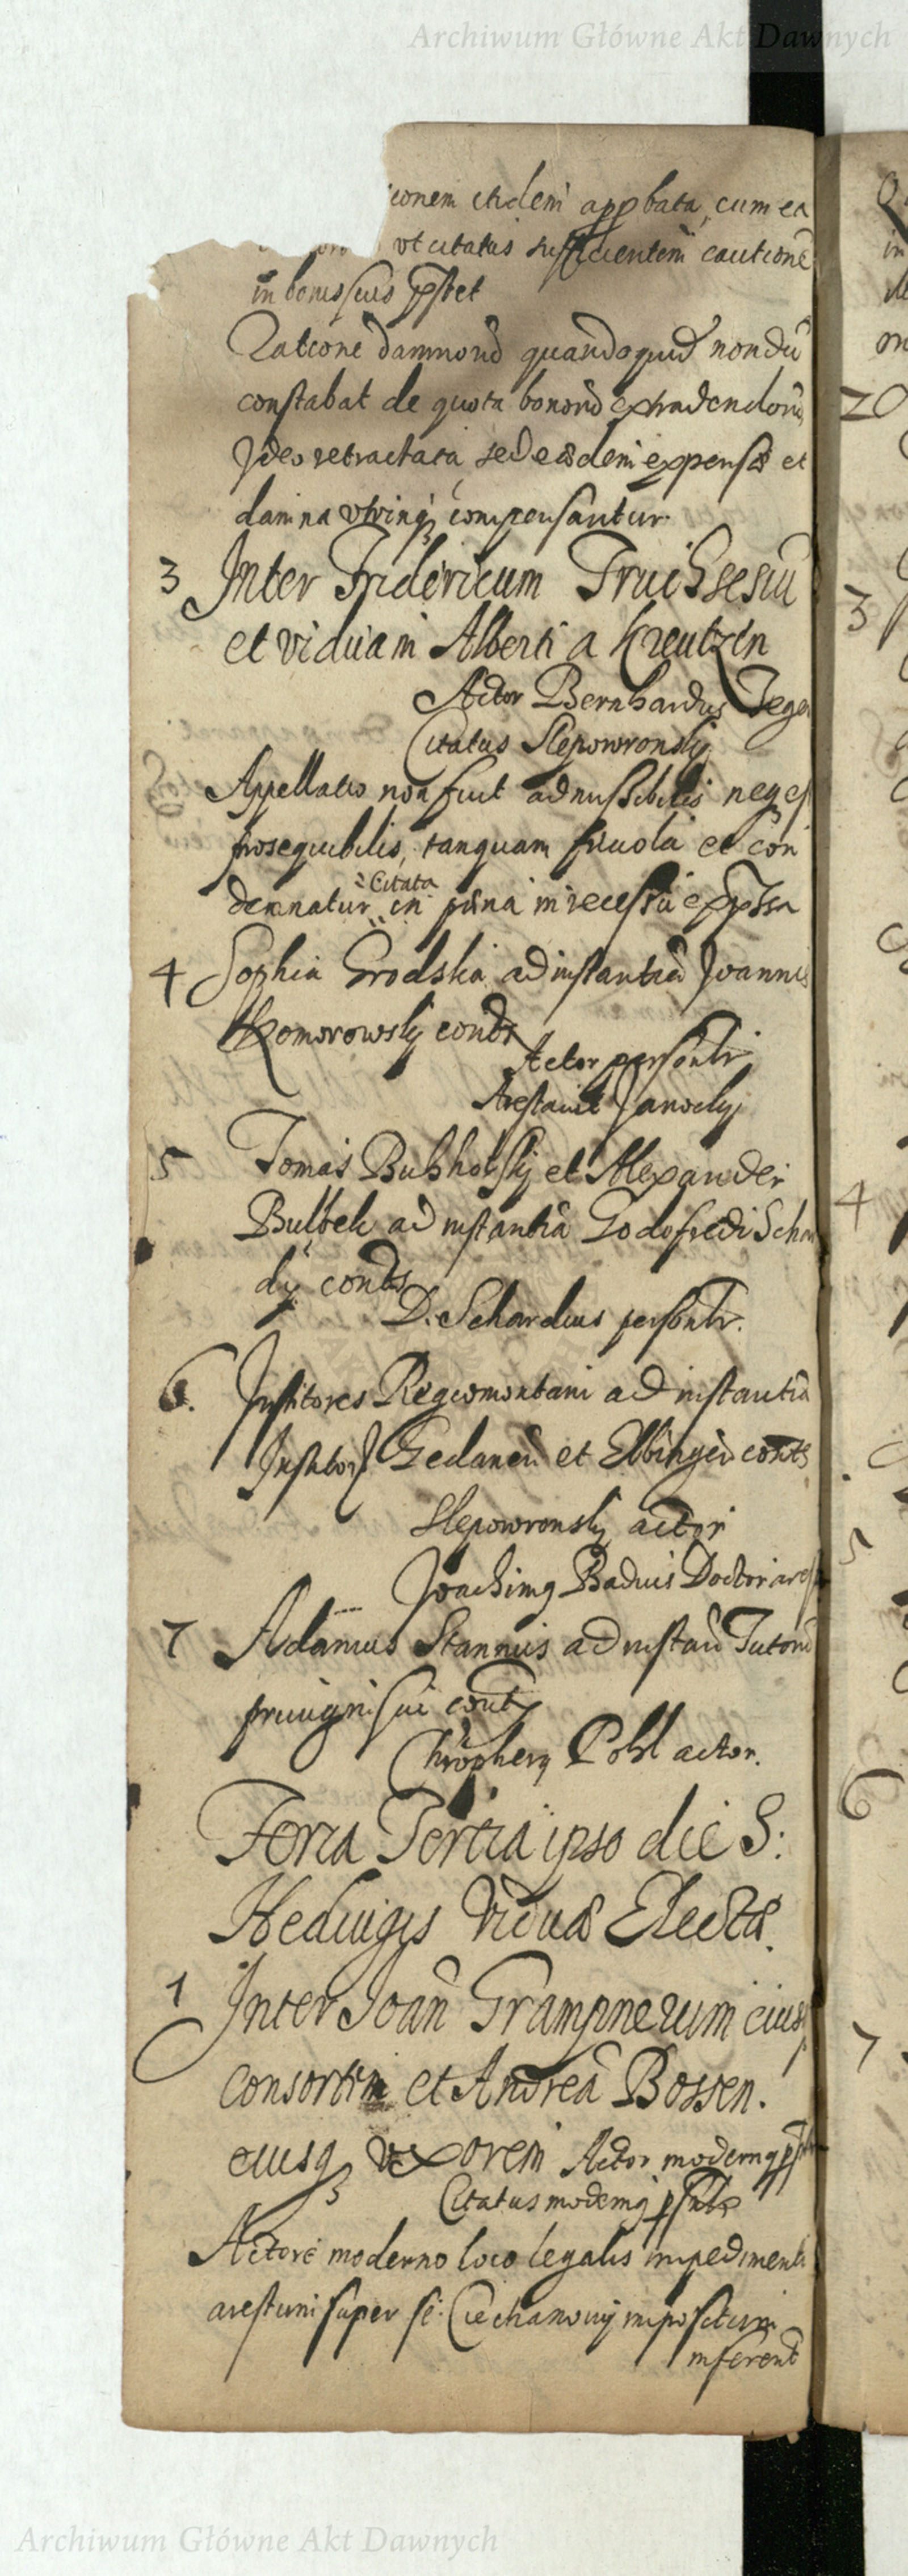 Archiwum Główne Akt Dawnych
ionem itidem appbata, cum ea
vt citatus sufficientem cautionē
in bonis suis pstet
Ratione damnorū quandoquid nondū
constabat de quota bonorū extradendorū
Ideo retractata, sed eidem expensæ et
damna vtrinq compensantur.
3 Inter Fridericum Truchsesiū
et viduam Alberti a Kreutzen
Actor Bernhardus
Citatus Slepowronsky
Appellatio non fuit admissibilis neq
prosequibilis, tanquam friuola et con
Citata
demnatur in pœna in recessu expssa
4 Sophia Grodska ad instantiā Joannis
Komorowsky contr
Actor personlr
Arestauit Janocky
5 Tomas Bukholsky et Alexander
Bulbek ad instantiā Godofredi Schar
dÿ contr
D. Schardius personlr.
6. Institores Regiomontani ad instantiā
Institor Gedanen et Elbingen contr
Slepowronsky actor
Joachimq Badius Doctor
7 Adamus Stannius ad instan Tutorū
priuigni sui contr
Chrōpherq Pohl actor.
Feria Tertia ipso die S:
Hedwigis Viduæ Electæ.
1 Inter Joan Grampnerum eiusq
consortem et Andreā Bossen.
eiusq vxorem Actor modernq
Citatus modernq
Actore moderno loco legalis impedimenti
arestum super se Ciechanowÿ impositum
inferent
Archiwum Główne Akt Dawnych